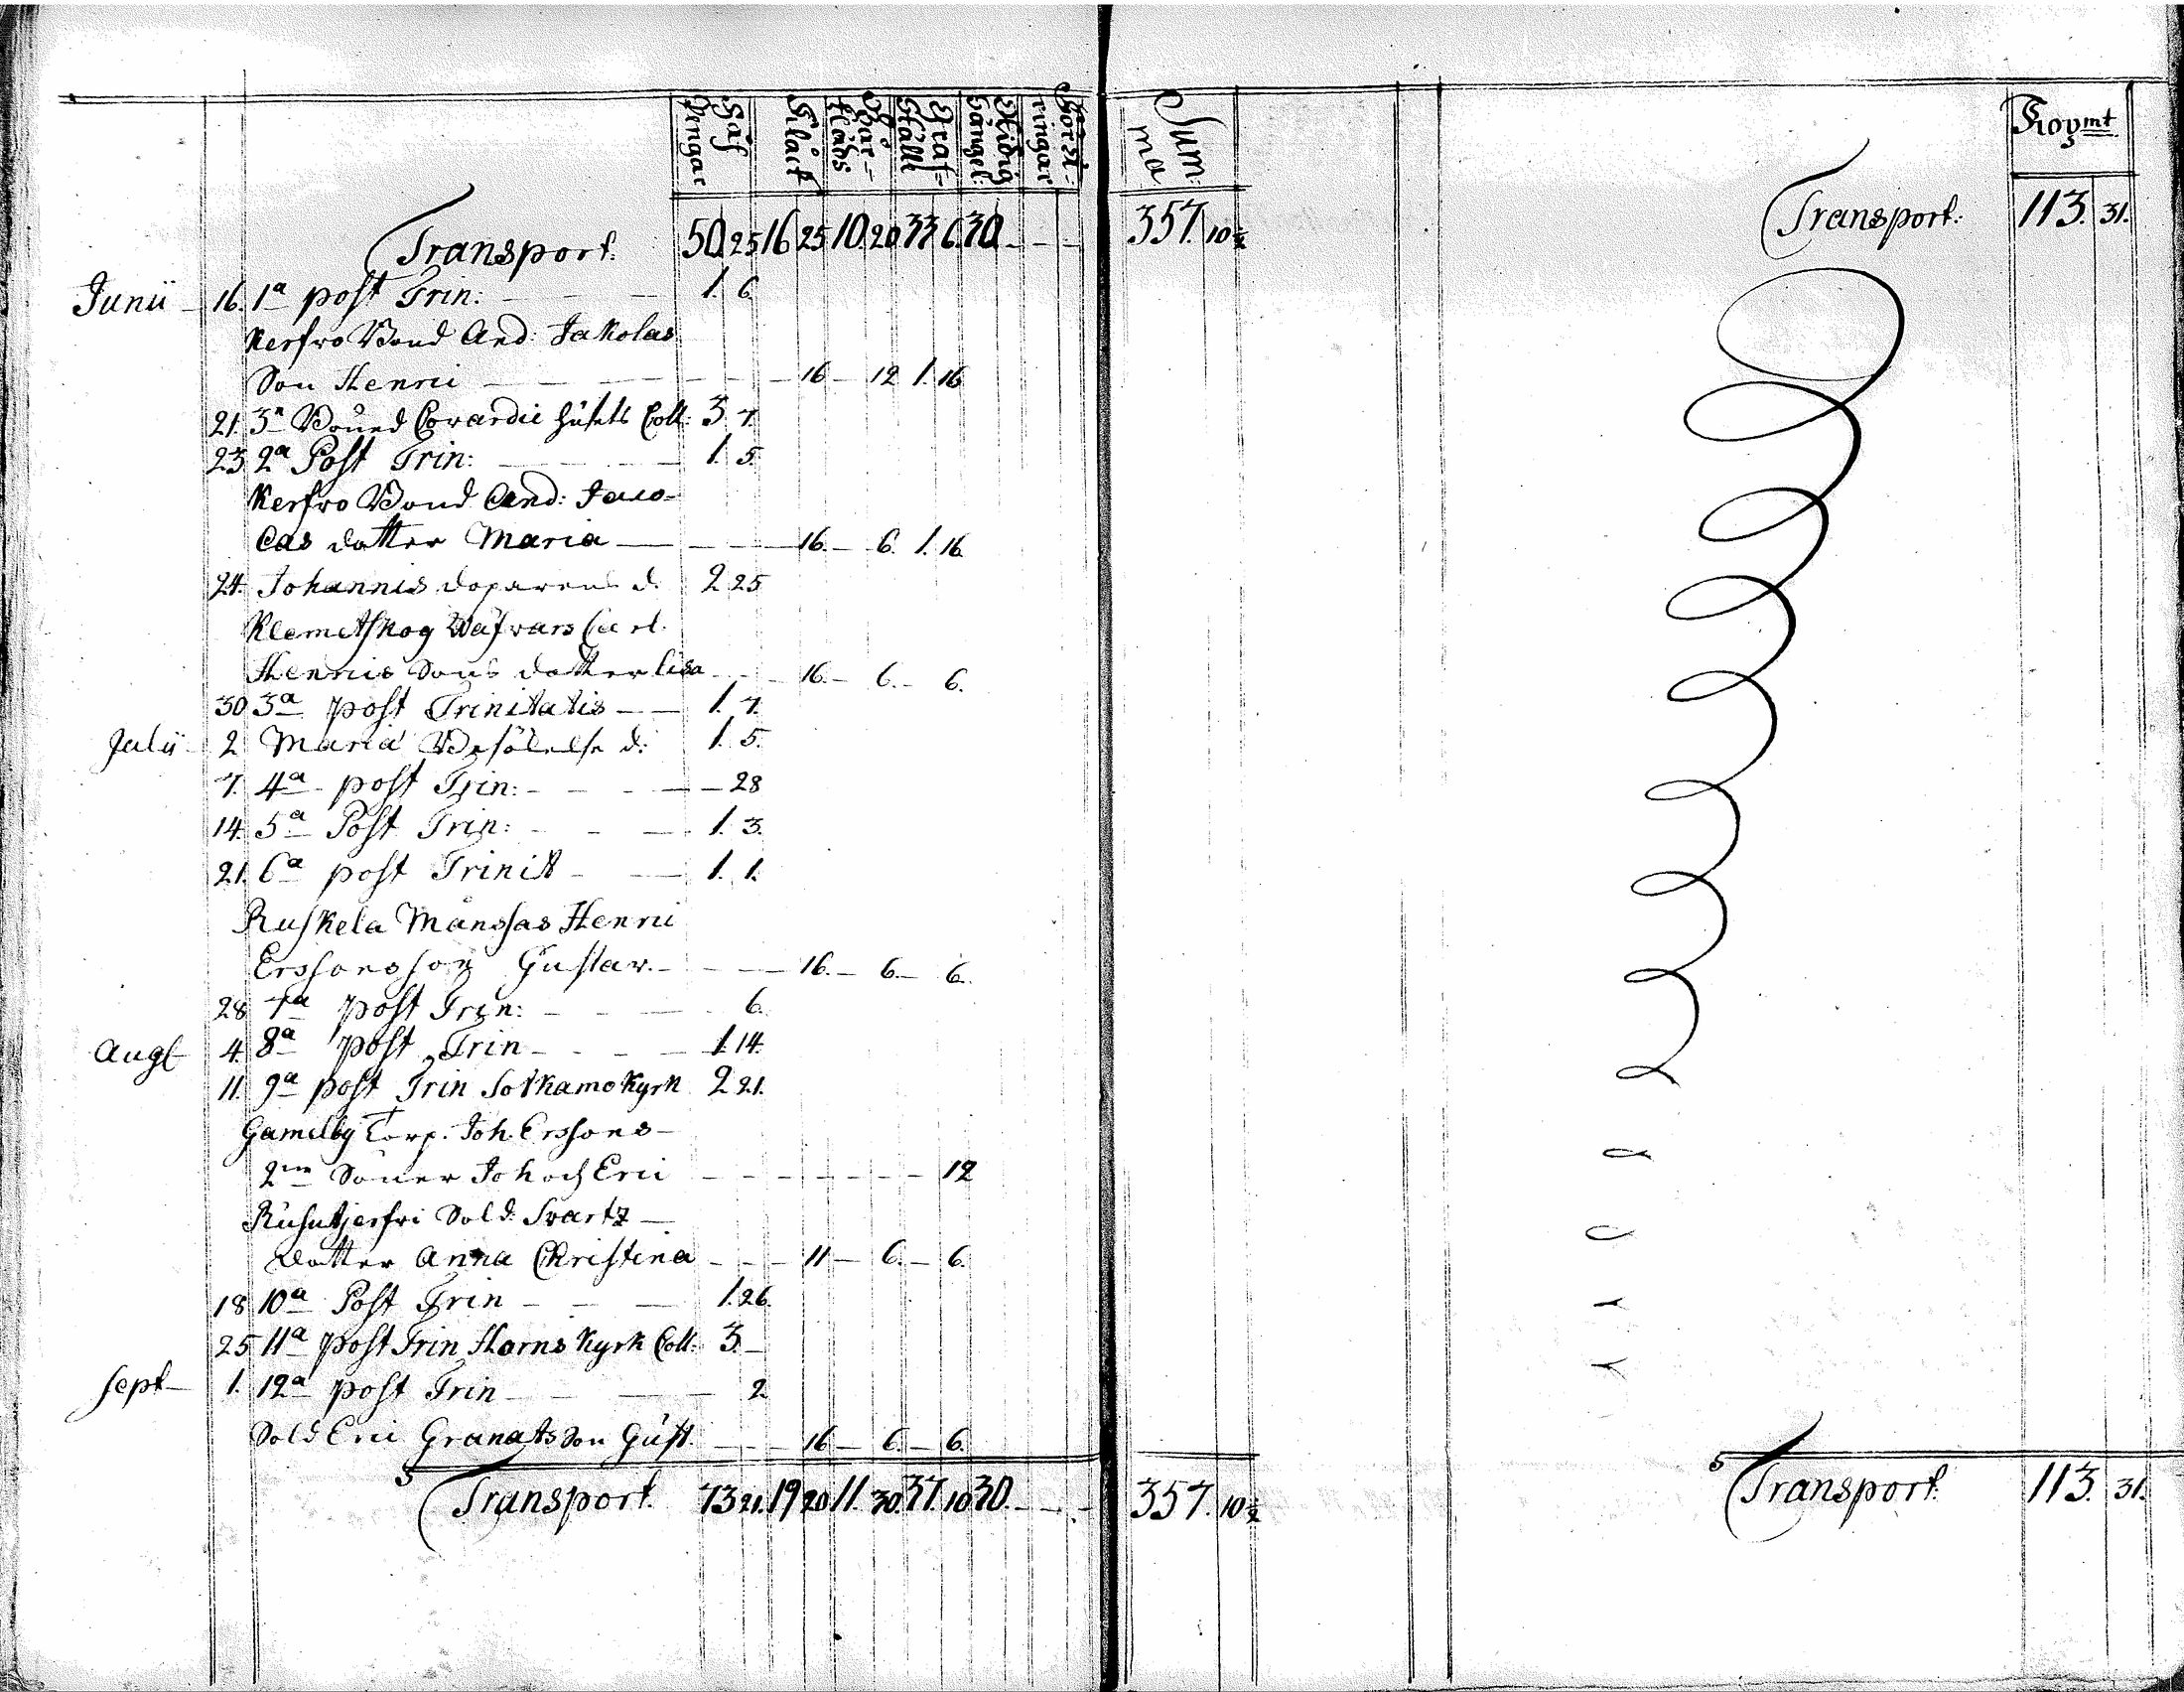 Håf Pengar
Bår kläde
Graf Ställe
Sum: ma
Koymt
Transport. 50. 25 16 25 10. 20 33 6. 30. - - - 357. 10 ½
Transport. 113. 31.
Junii 16. 1a post Trin: 1. 6.
Kerfro Bond And: Jakolas
Son Henric 16 - 12 1. 16
21. 3a Coll: 3. 7.
23 2a Post Trin: 1. 5.
Kerfro Bond And:
dotter Maria 16. - 6. 1. 16.
24. Johannis döparens d. 2 25
Klemetskog
Henrics Sons dotter Lisa 16. - 6. - 6.
30 3a post Trinitatis 1. 7.
Julii 2 Maria d: 1. 5.
7. 4a post Trin: - 28
14. 5a Post Trin: 1. 3.
21. 6a post Trinit 1. 1.
Ruskela Månssas Henric
Erssons son Gustav. 16. - 6. - 6.
28 7a post Trin: 6.
Augt 4. 8a post Trin 1. 14.
11. 9a post Trin Sotkamo Kyrk 2 21.
Gamelby Torp. Joh. Erssons
2ne Söner Joh och Eric 12
Sold. Svartz
Dotter Anna Christina 11 - 6. - 6.
18 10a Post Trin 1. 26.
25 11a post Trin Horns Kyrk Coll: 3. -
Sept 1. 12a post Trin 2
Sold Eric Granats Son Gust. 16 - 6. - 6.
Transport. 73 21. 19 20 11. 30. 37. 10 30. - - - 357. 10 ½
Transport. 113. 31.